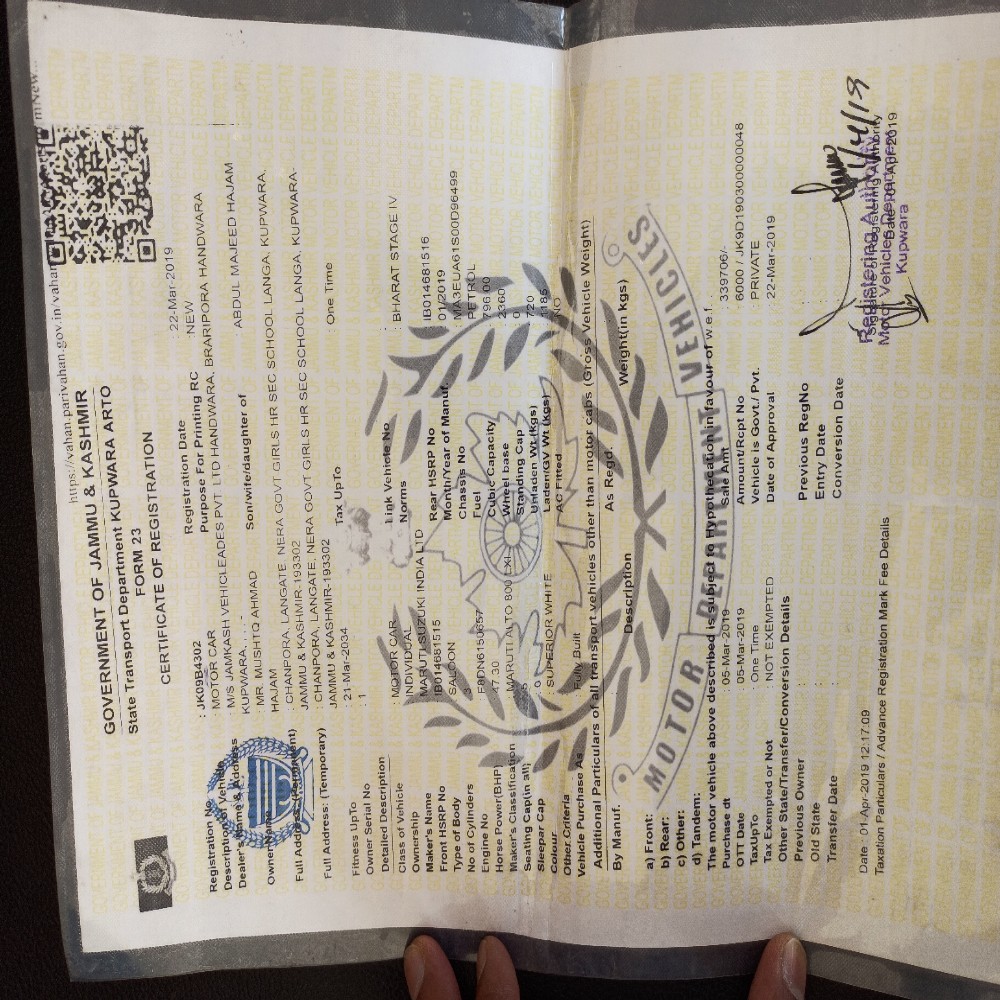 https://vahan.parivahan.gov.in/vahan
GOVERNMENT OF JAMMU & KASHMIR
State Transport Department KUPWARA ARTO
FORM 23
CERTIFICATE OF REGISTRATION
Registration No : JK09B4302 Registration Date : 22-Mar-2019
Description of Vehicle : MOTOR CAR Purpose For Printing RC : NEW
Dealer's Name & Address : M/S JAMKASH VEHICLEADES PVT LTD HANDWARA, BRARIPORA HANDWARA
KUPWARA, . , -
Owner Name : MR. MUSHTQ AHMAD Son/wife/daughter of ABDUL MAJEED HAJAM
HAJAM
Full Address: (Permanent) : CHANPORA, LANGATE, NERA GOVT GIRLS HR SEC SCHOOL LANGA, KUPWARA,
JAMMU & KASHMIR-193302
Full Address: (Temporary) : CHANPORA, LANGATE, NERA GOVT GIRLS HR SEC SCHOOL LANGA, KUPWARA-
JAMMU & KASHMIR-193302
Fitness UpTo : 21-Mar-2034 Tax UpTo : One Time
Owner Serial No : 1
Detailed Description
Class of Vehicle : MOTOR CAR Link Vehicle No
Ownership : INDIVIDUAL Norms : BHARAT STAGE IV
Maker's Name : MARUTI SUZUKI INDIA LTD
Front HSRP No : IB014681515 Rear HSRP No : IB014681516
Type of Body : SALOON Month/Year of Manuf. : 01/2019
No of Cylinders : 3 Chassis No : MA3EUA61S00D96499
Engine No : F8DN6150657 Fuel : PETROL
Horse Power(BHP) : 47.30 Cubic Capacity : 796.00
Maker's Classification : MARUTI ALTO 800 LXI Wheel base : 2360
Seating Cap(in all) : 5 Standing Cap : 0
Sleepar Cap : 0 Unladen Wt (Kgs) : 720
Colour : SUPERIOR WHITE Laden/GV Wt (kgs) : 1185
Other Criteria : NO
Vehicle Purchase As : Fully Built
Additional Particulars of all transport vehicles other than motor cabs (Gross Vehicle Weight)
By Manuf. As Regd.
Description Weight(in kgs)
a) Front:
b) Rear:
c) Other:
d) Tandem:
The motor vehicle above described is subject to Hypothecation in favour of w.e.f.
Purchase dt : 05-Mar-2019 Sale Amt : 339706/-
OTT Date : 05-Mar-2019 Amount/Rcpt No : 6000 / JK9D190300000048
TaxUpTo : One Time Vehicle is Govt./ Pvt. : PRIVATE
Tax Exempted or Not : NOT EXEMPTED Date of Approval : 22-Mar-2019
Other State/Transfer/Conversion Details
Previous Owner Previous RegNo
Old State Entry Date
Transfer Date Conversion Date
MOTOR VEHICLES
Registering Authority
Motor Vehicles Department
Kupwara
Date : 01-Apr-2019 12:17:09
Taxation Particulars / Advance Registration Mark Fee Details